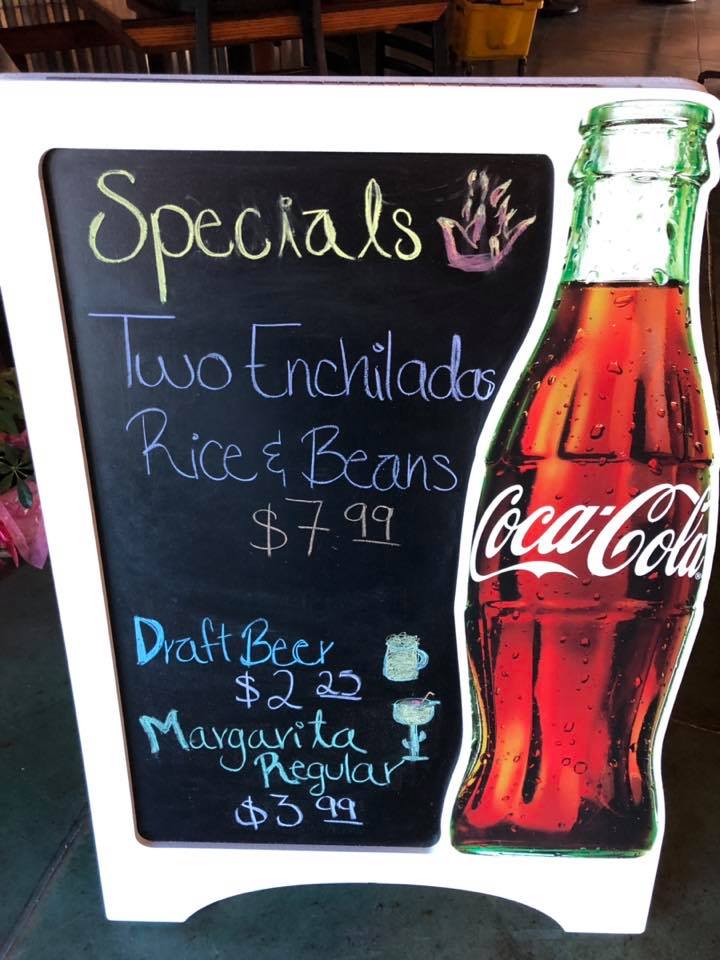 Specials
Two Enchiladas
Rice & Beans
$7.99
Draft Beer
$2 25
Margarita
Regular
$3 99
Coca-Cola